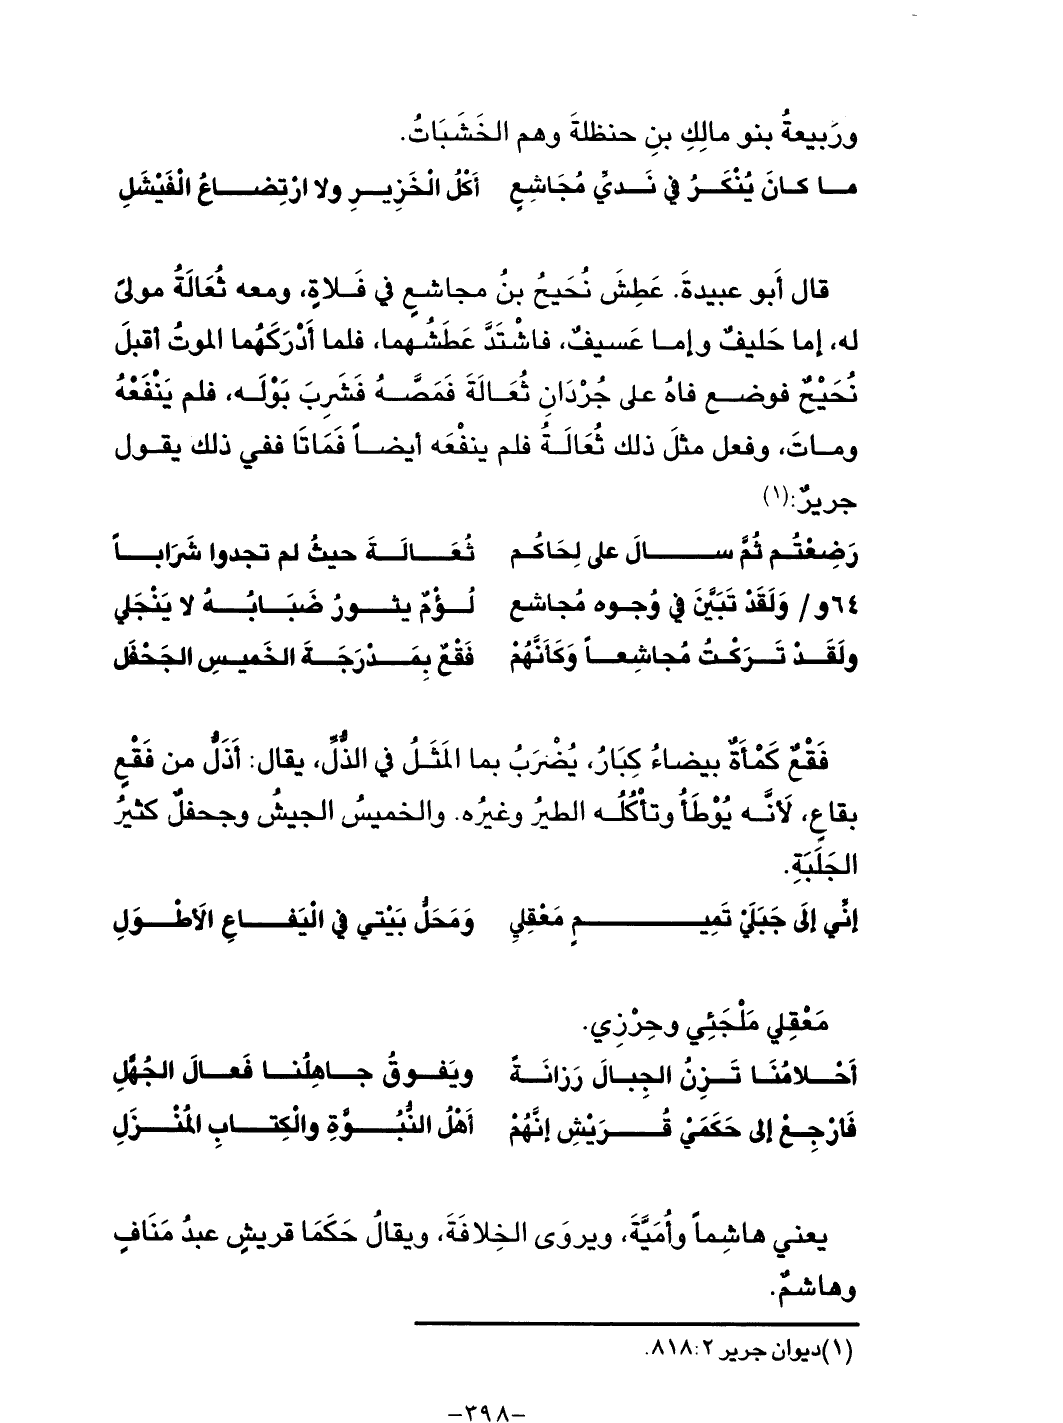 ورَبيعةُ بنو مالِكِ بنِ حنظلةَ وهم الخَشَبَاتُ.
مـا كـانَ يُنْكَـرُ في نَـديِّ مُجَاشِعٍ أكْلُ الْخَزِيـرِ ولا ارْتِضـاعُ الْفَيْشَلِ
قال أَبو عبيدةَ. عَطِشَ نُحَيحُ بنُ مجاشعٍ في فَـلاةٍ، ومعه ثُعَالَةُ مولىً
له، إما حَليفٌ وإمـا عَسيفٌ، فاشْتَدَّ عَطَشُـهما، فلما أَدْرَكَهُما الموتُ أقبلَ
نُحَيْحٌ فوضـع فاهُ على جُرْدَانِ ثُعَـالَةَ فَمَصَّـهُ فَشَرِبَ بَوْلَـه، فلم يَنْفَعْهُ
ومـاتَ، وفعل مثلَ ذلك ثُعَالَـةُ فلم ينفْعَه أيضـاً فَمَاتَا ففي ذلك يقـول
جريرٌ:(١)
رَضِعْتُـم ثُمَّ سـالَ على لِحَاكُم ثُعَـالَـةَ حيثُ لم تجدوا شَرَابـاً
٦٤و/ وَلَقَدْ تَبَيَّنَ في وُجـوه مُجاشع لُـؤْمٌ يثـورُ ضَبَـابُـهُ لا يَنْجَلي
ولَقَـدْ تَـرَكْـتُ مُجاشِعـاً وَكَأَنَّهُمْ فَقْعٌ بِمَـدْرَجَـةَ الخَميـسِ الجَحْفَل
فَقْعٌ كَمْأَةٌ بيضاءُ كِبَارُ، يُضْرَبُ بما المَثَـلُ في الذُّلِّ، يقال: أَذَلُّ من فَقْعٍ
بقاعٍ، لَأنَّـه يُوْطَأُ وتأْكُلُـه الطيرُ وغيرُه. والخميسُ الجيشُ وجحفلٌ كثيرُ
الجَلَبَةِ.
إنِّي إلَى جَبَلَيْ تَمِيـمٍ مَعْقِلِي وَمَحَلُّ بَيْتي في الْيَفـاعِ الَأطْـوَلِ
مَعْقِلِي مَلْجَئِي وحِرْزِي.
أَحْـلامُنَـا تَـزِنُ الجِبـالَ رَزانَـةً ويَفـوقُ جـاهِلُنـا فَعـالَ الجُهَّلِ
فَارْجِـعْ إلى حَكَمَيْ قُـرَيْشٍ إنَّهُمْ أَهْلُ النُّبُـوَّةِ والْكِتـابِ المُنْـزَلِ
يعني هاشِماً وأُمَيَّةَ، ويروَى الخِلافَةَ، ويقالُ حَكَمَا قريشٍ عبدُ مَنَافٍ
وهاشمٌ.
(١)ديوان جرير ٢: ٨١٨.
-٣٩٨-